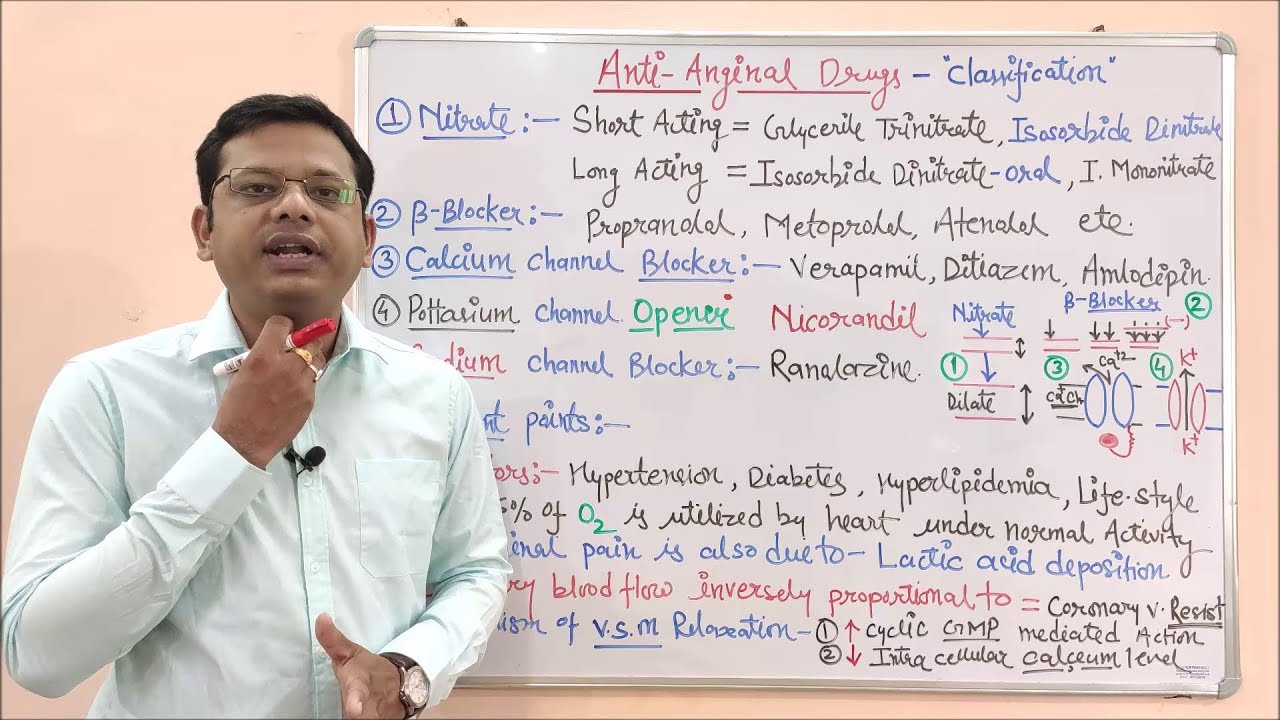 Anti-Anginal Drugs - "Classification"
① Nitrate:- Short Acting = Glycerile Trinitrate, Isosorbide Dinitrate
Long Acting = Isosorbide Dinitrate-oral, I. Mononitrate
② β-Blocker:- Propranolol, Metoprolol, Atenolol etc.
③ Calcium channel Blocker:- Verapamil, Ditiazem, Amlodepin.
④ Pottasium channel Opener Nicorandil
channel Blocker:- Ranolazine.
points:-
Hypertension, Diabetes, Hyperlipidemia, Life-style
5% of O2 is utilized by heart under normal Activity
pain is also due to - Lactic acid deposition
blood flow inversely proportional to = Coronary v. Resist
of V.S.M Relaxation - ① ↑ cyclic GMP mediated Action
② ↓ Intra cellular calceum level
Nitrate
β-Blocker ②
(-)
①
③
Ca+2
④
K+
Dilate
K+